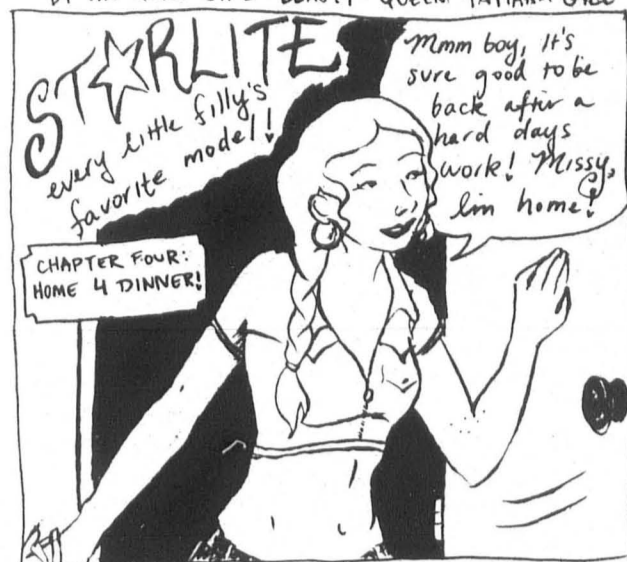 BEAUTY QUEEN TATIANA GILL
ST☆RLITE
every little filly's
favorite model!
CHAPTER FOUR:
HOME 4 DINNER!
Mmm boy, it's
sure good to be
back after a
hard days
work! Missy,
I'm home!